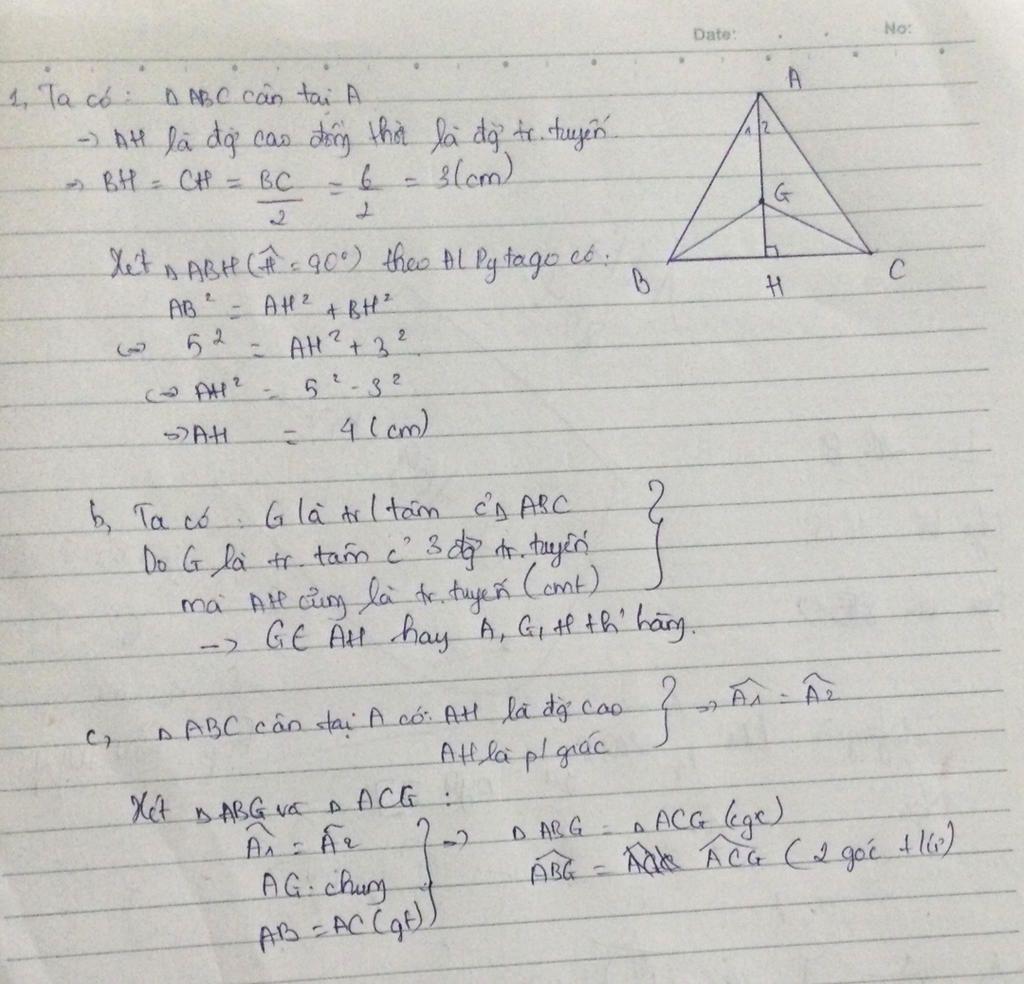 Date: No:
1, Ta có: Δ ABC cân tại A
→ AH là đg` cao đồng thời là đg` tr. tuyến.
⇒ BH = CH = BC/2 = 6/2 = 3(cm)
Xét Δ ABH (Ĥ = 90°) theo Đl Pytago có:
AB² = AH² + BH²
⇔ 5² = AH² + 3²
⇔ AH² = 5² - 3²
⇒ AH = 4 (cm)
A
1 2
G
B H C
b, Ta có: G là tr/tâm c' Δ ABC
Do G là tr. tâm c' 3 đg` tr. tuyến
mà AH cũng là tr. tuyến (cmt)
→ G ∈ AH hay A, G, H th' hàng.
c, Δ ABC cân tại A có: AH là đg` cao } ⇒ Â1 = Â2
AH là p/ giác
Xét Δ ABG và Δ ACG:
Â1 = Â2 } ⇒ Δ ABG = Δ ACG (cgc)
AG: chung ABG = ACG (2 góc t/ứ)
AB = AC (gt)